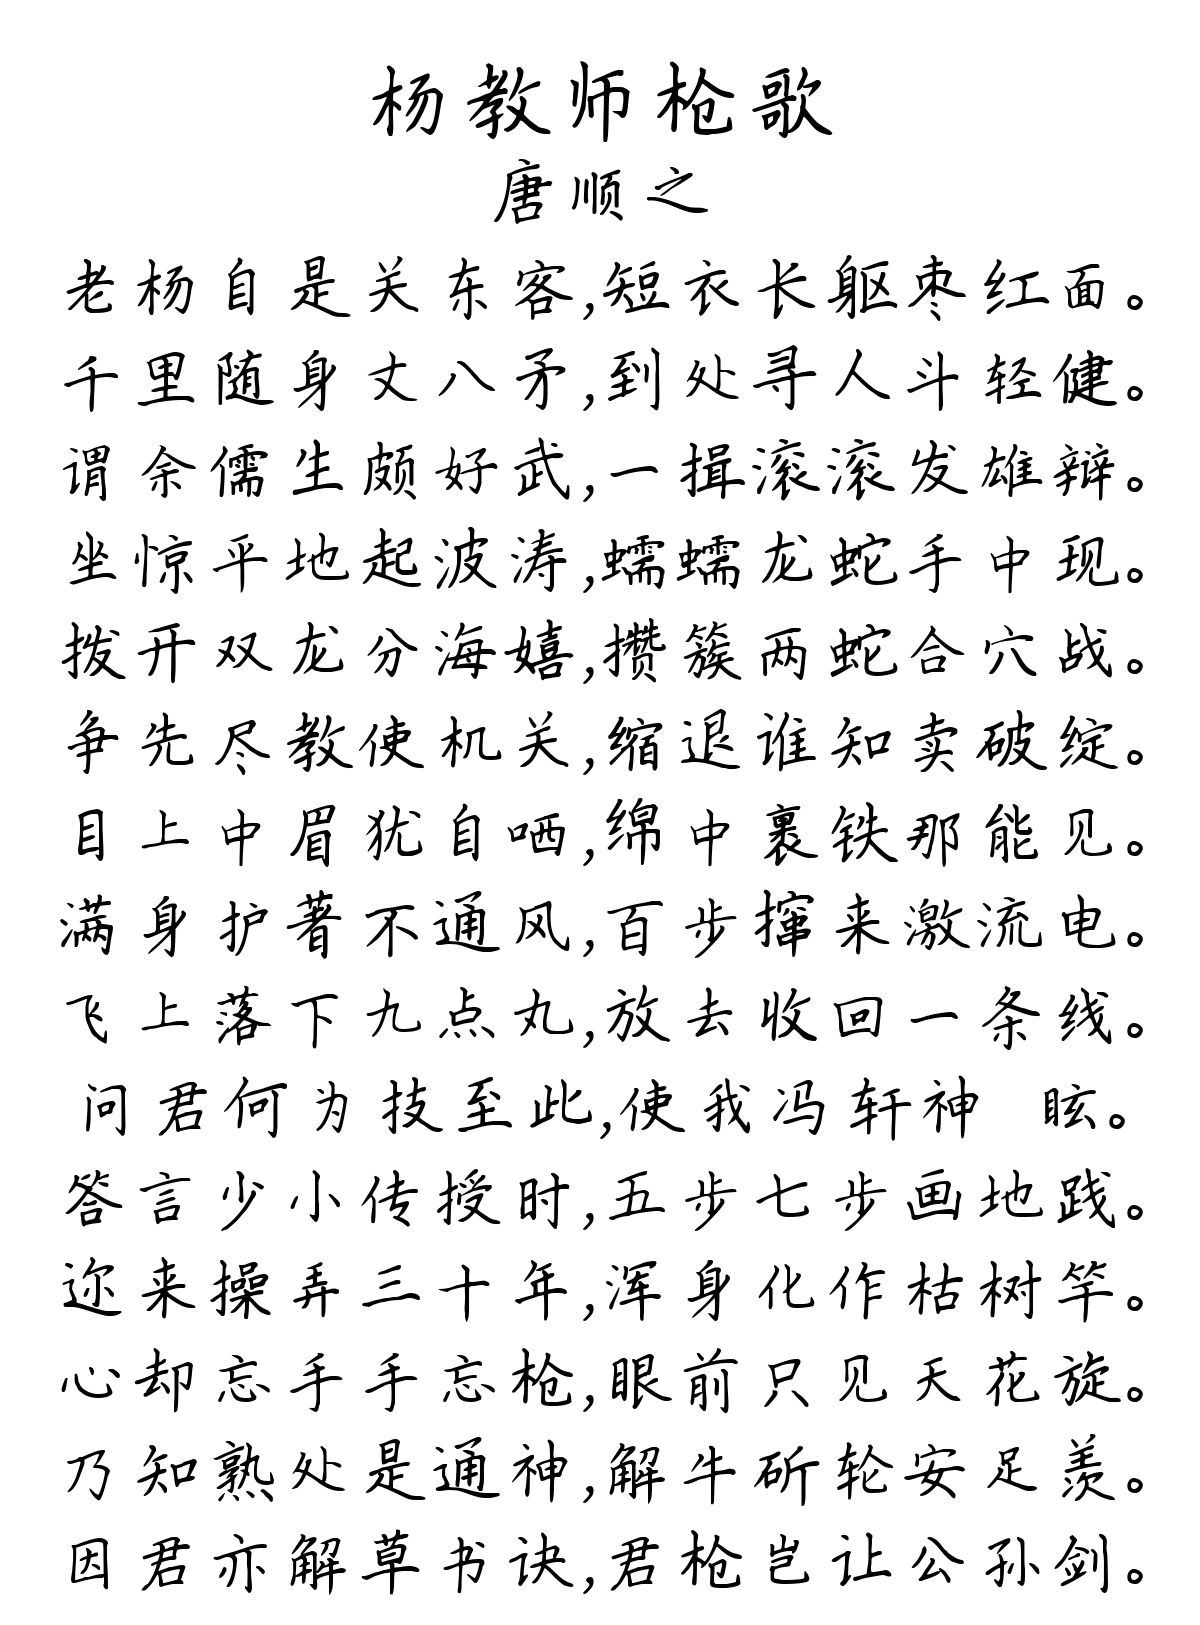 杨教师枪歌
唐顺之
老杨自是关东客,短衣长躯枣红面。
千里随身丈八矛,到处寻人斗轻健。
谓余儒生颇好武,一揖滚滚发雄辩。
坐惊平地起波涛,蠕蠕龙蛇手中现。
拨开双龙分海嬉,攒簇两蛇合穴战。
争先尽教使机关,缩退谁知卖破绽。
目上中眉犹自哂,绵中裹铁那能见。
满身护著不通风,百步撺来激流电。
飞上落下九点丸,放去收回一条线。
问君何为技至此,使我冯轩神 眩。
答言少小传授时,五步七步画地践。
迩来操弄三十年,浑身化作枯树竿。
心却忘手手忘枪,眼前只见天花旋。
乃知熟处是通神,解牛斫轮安足羡。
因君亦解草书诀,君枪岂让公孙剑。